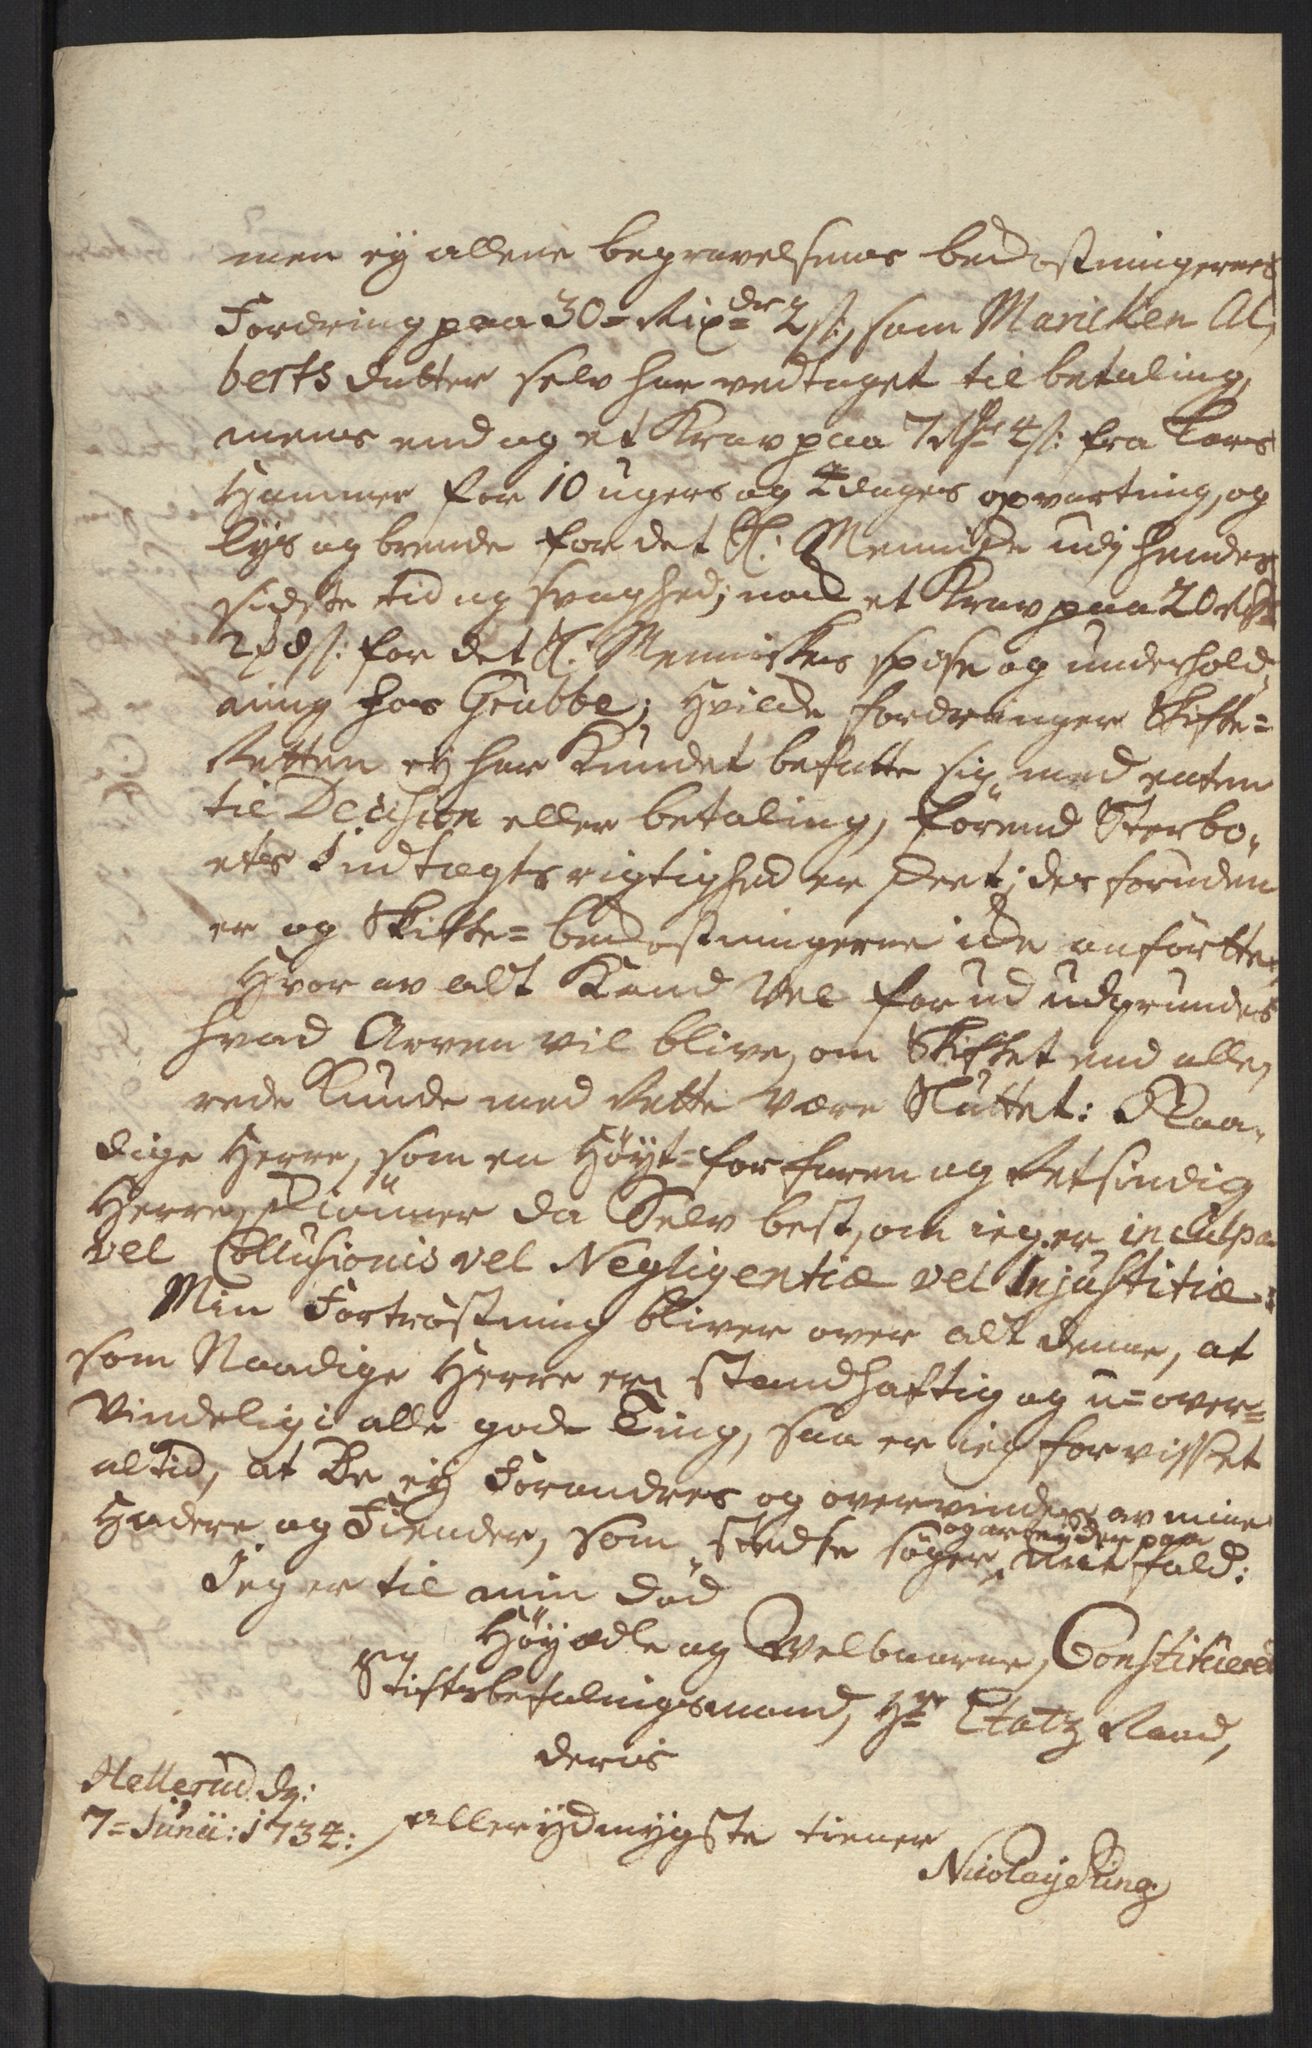 men ej allene begravelsens bekostningernes
Fordring paa 30= Rix=dr 2 s:, som Maricken Al,
berts datter selv har vedtaget til betaling,
mens end og et Krav paa 7 Rdr 4 s: fra Lars
Hammer for 10 ugers og 2 dages opvartning, og
lys og brende for det Sl: Menniske udj hendes
sidste tid og svaghed; nok et Krav paa 20 Rdr
2 ß 8 s: for det Sl: Menniskes spise og underhold,
ning hos Grubbe; Hvilke fordringer Skifte=
Retten ej har Kundet befatte sig med enten
til Decision eller betaling, förend Sterbo,,
ets Indtægts rigtighed er skeet; des foruden
er og Skifte= bekostningerne icke anförtte,
Hvor av alt Kand Vel forud udgrundes
hvad Arven vil blive, om Skiftet end alle,
rede Kunde med Rette Være Sluttet: Naa,
dige Herre, som en Höyt= forfaren og Retsindig
Herre, Kiönner da Selv best, om ieg er in culpa
vel Collusionis vel Negligentiæ vel Injustitiæ:
Min Fortröstning bliver over alt denne, at
som Naadige Herre er standhaftig og u=over=
Vindelig i alle gode Ting, saa er ieg forvisset
altid, at De ej Forandres og overvindes av mine
Hadere og Fiender, som stedse söger og arbeyder paa mit fald:
Jeg er til min Död
Höyædle og Velbaarne, Constituered
Stiftsbefalingsmand, Hr Etatz Raad,
deris
Hellerud. dg:
7= Junii: 1732:
allerydmygste tiener
Nicolay Ring